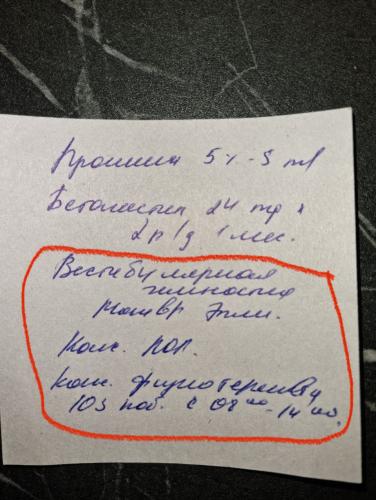 5% - 5 ml
Бетагистин 24 mg x
2р/д 1 мес.
Вестибулярная
гимнастика
маневр Эпли.
Конс. ЛОР.
конс. физиотерапевта
103 каб. с 08⁰⁰ - 14⁰⁰.